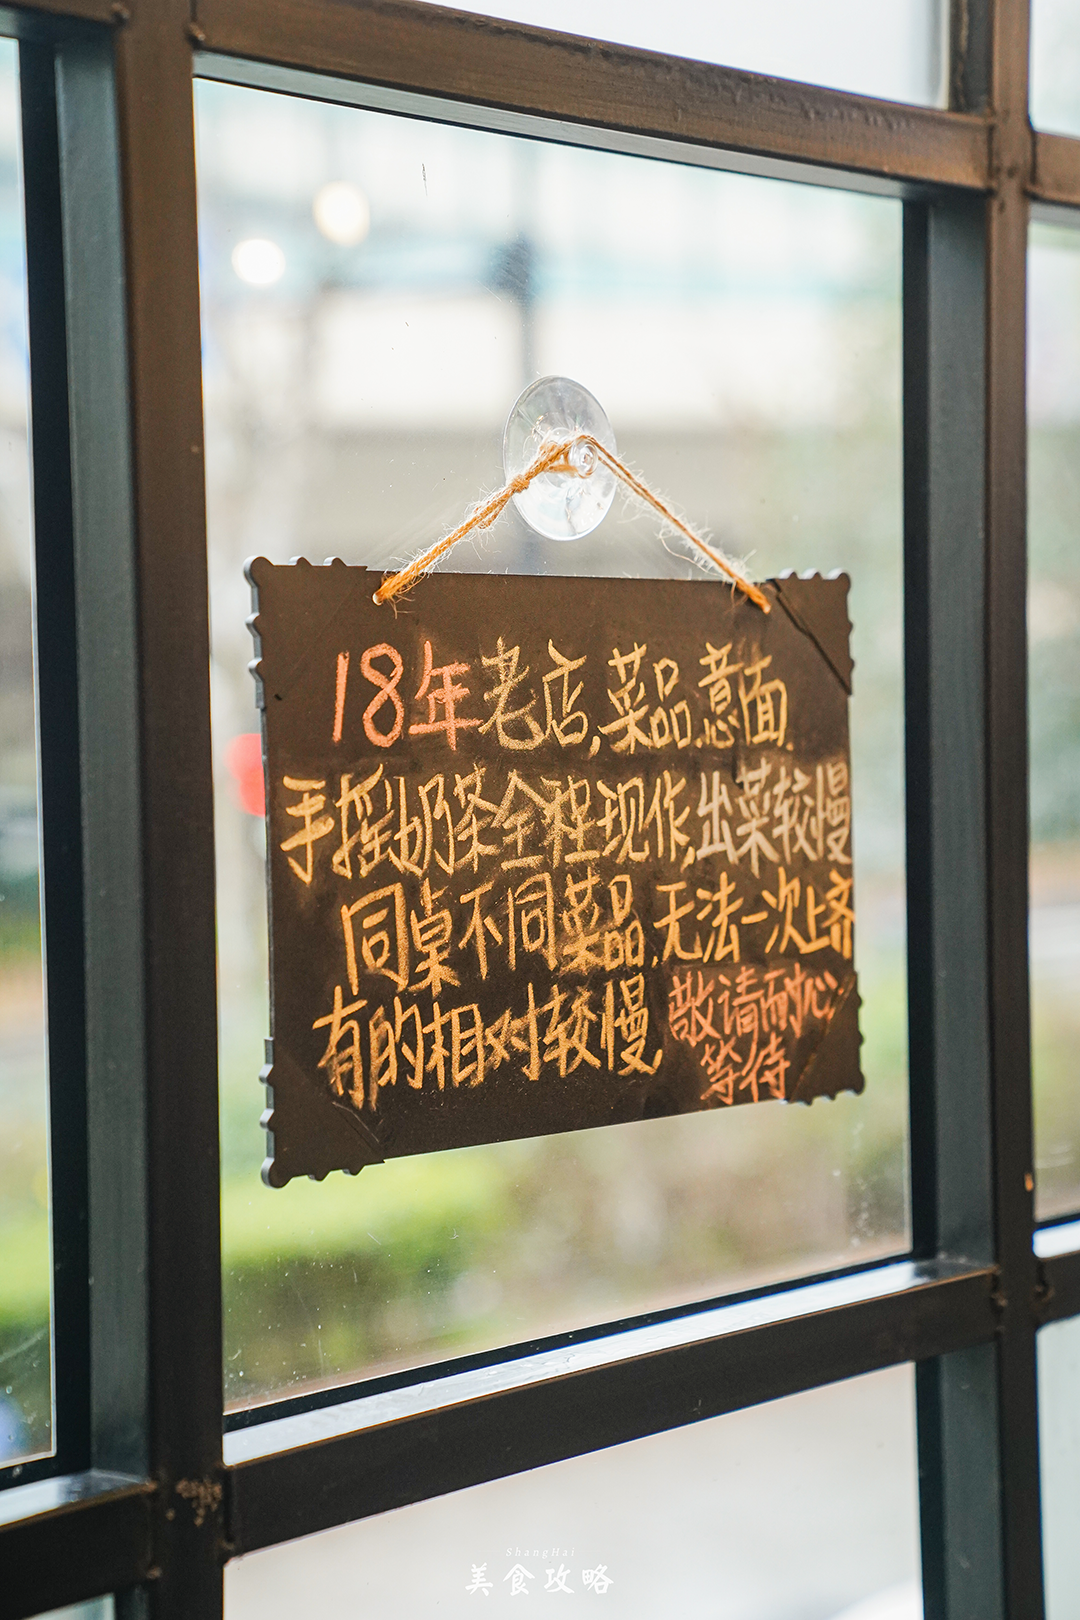 18年老店,菜品.意面.
手摇奶茶全程现作,出菜较慢
同桌不同菜品.无法一次上齐
有的相对较慢,敬请耐心
等待
ShangHai
美食攻略